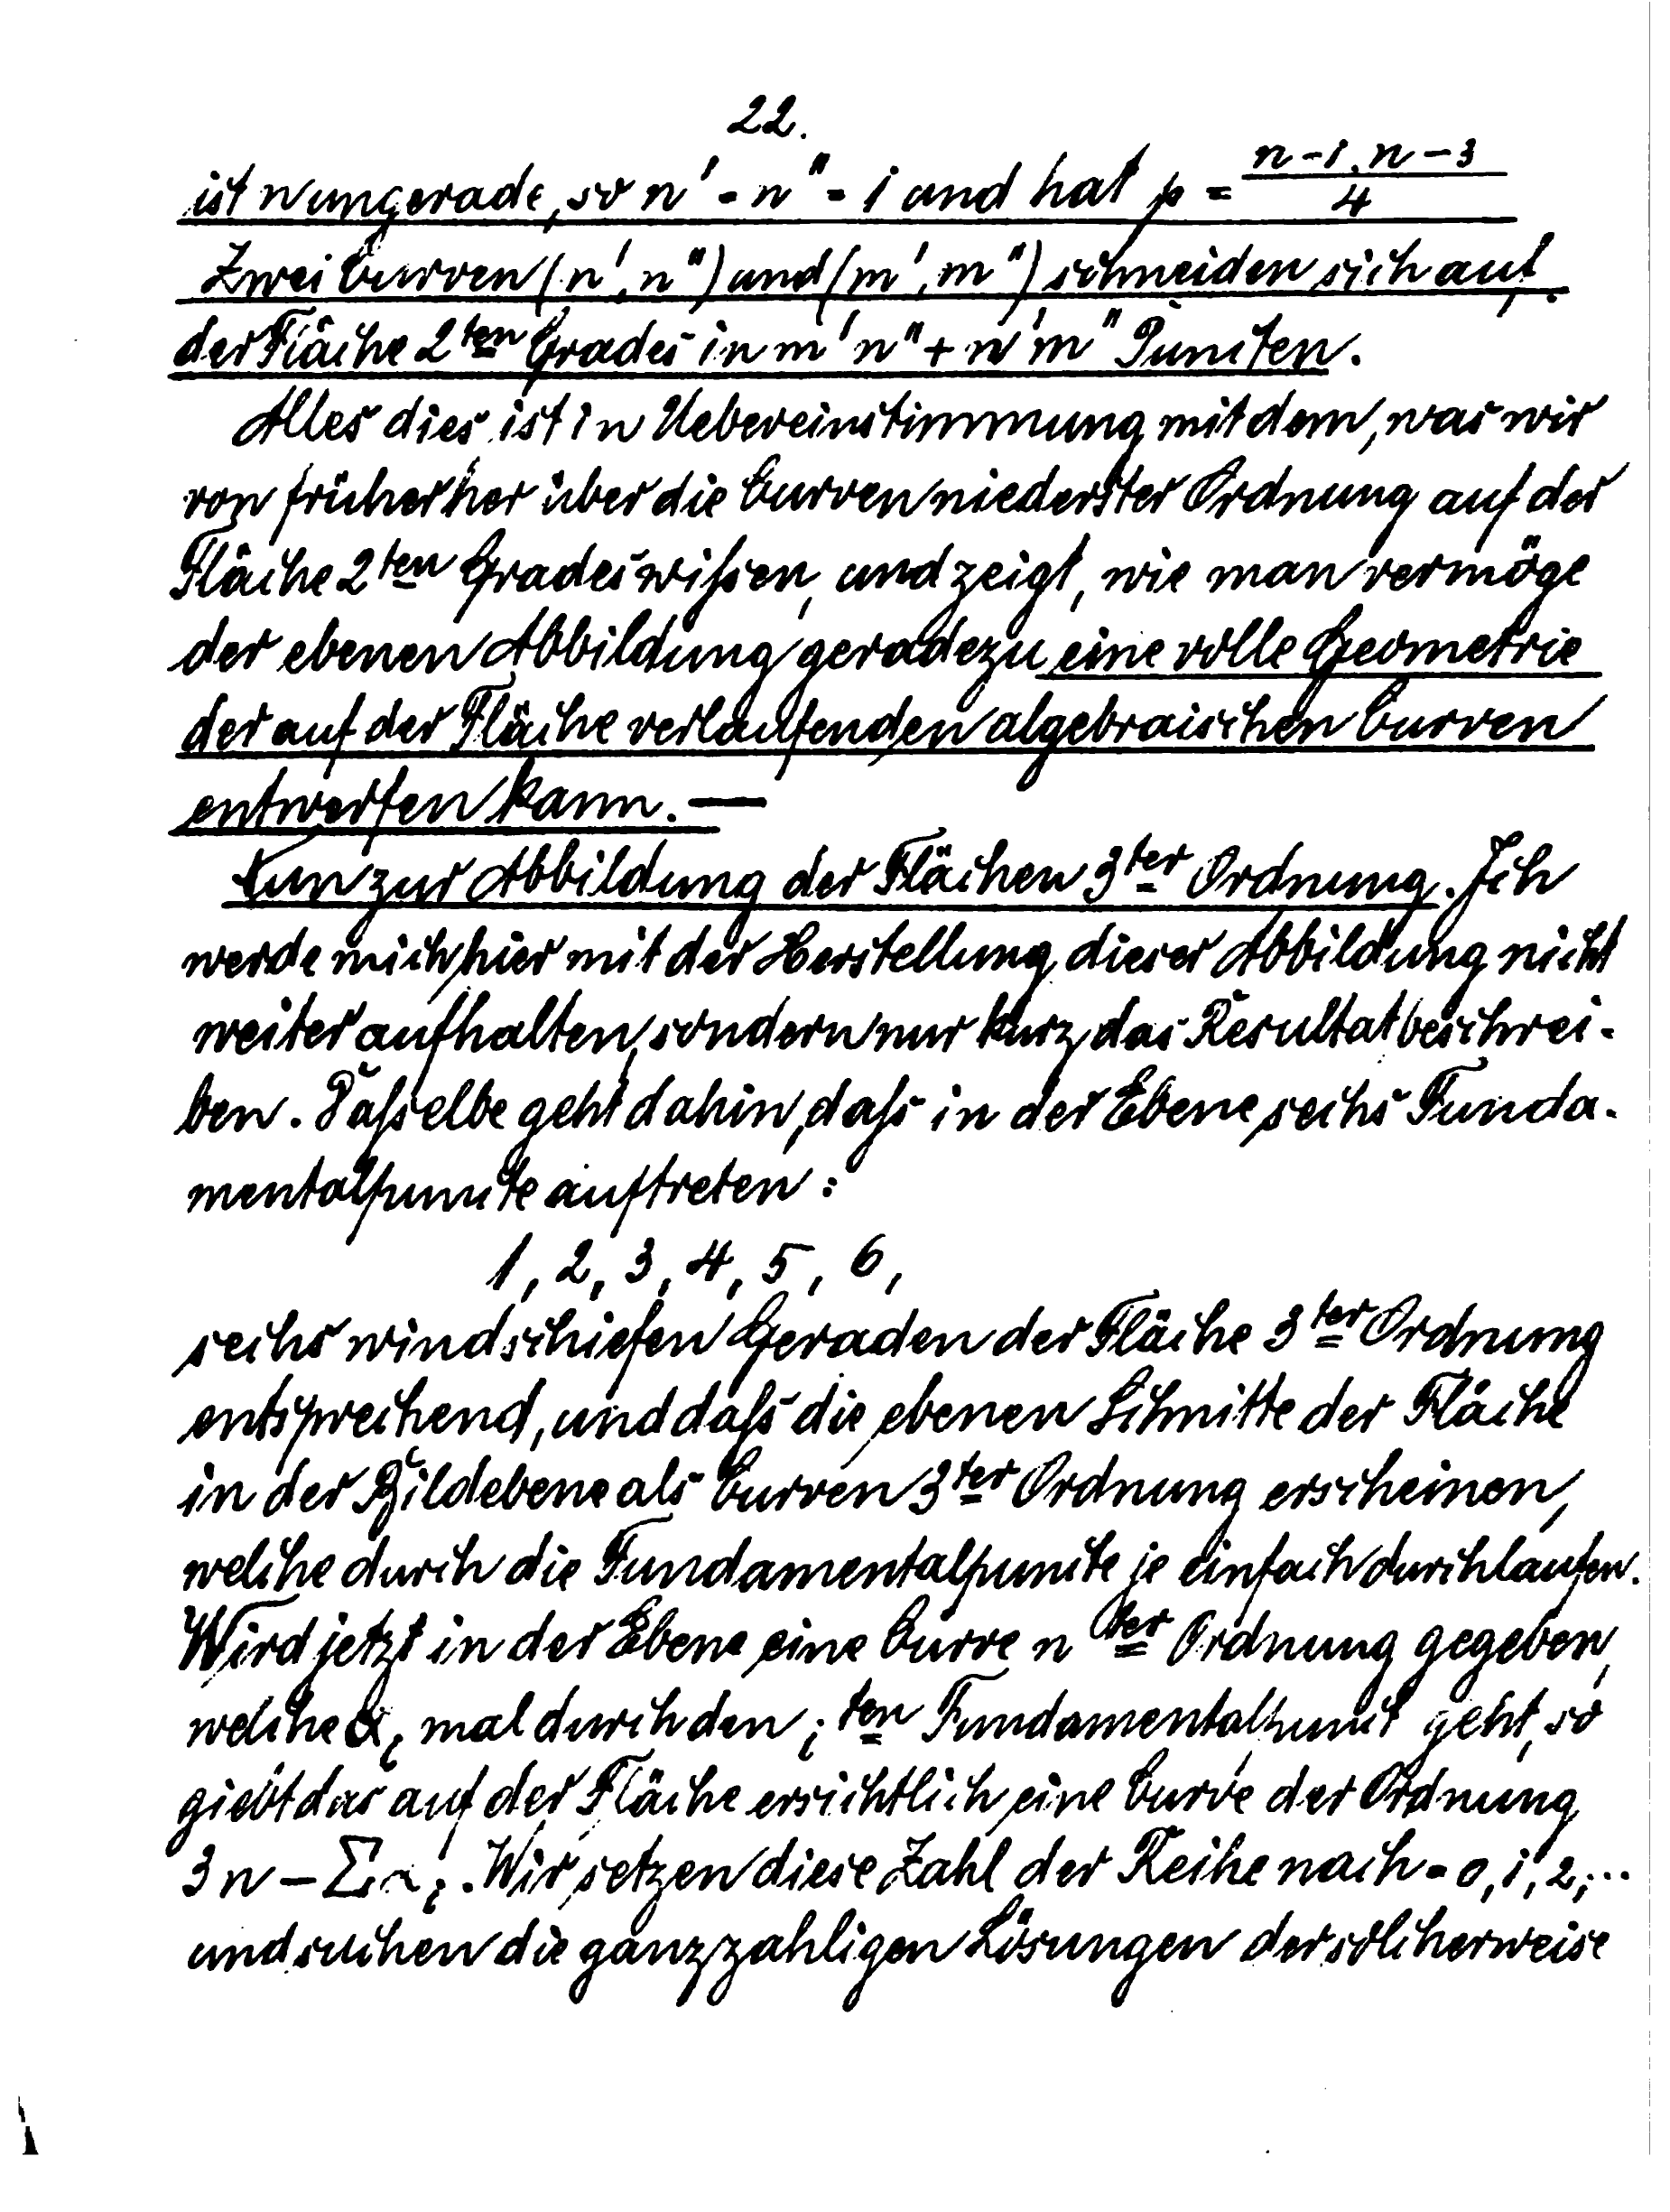 22.
ist n ungerade, so n' - n" = 1 und hat p = n-1. n-3 / 4
Zwei Curven (n', n") und (m', m") schneiden sich auf
der Fläche 2ten Grades in m'n" + n'm" Puncten.
Alles dies ist in Uebereinstimmung mit dem, was wir
von früher her über die Curven niederster Ordnung auf der
Fläche 2ten Grades wissen, und zeigt, wie man vermöge
der ebenen Abbildung geradezu eine volle Geometrie
der auf der Fläche verlaufenden algebraischen Curven
entwerfen kann. —
Nun zur Abbildung der Flächen 3ter Ordnung. Ich
werde mich hier mit der Herstellung dieser Abbildung nicht
weiter aufhalten, sondern nur kurz das Resultat beschrei-
ben. Dasselbe geht dahin, dass in der Ebene sechs Funda-
mentalpuncte auftreten:
1, 2, 3, 4, 5, 6,
sechs windschiefen Geraden der Fläche 3ter Ordnung
entsprechend, und dass die ebenen Schnitte der Fläche
in der Bildebene als Curven 3ter Ordnung erscheinen,
welche durch die Fundamentalpuncte je einfach durchlaufen.
Wird jetzt in der Ebene eine Curve n ter Ordnung gegeben,
welche αi mal durch den i ten Fundamentalpunct geht, so
giebt das auf der Fläche ersichtlich eine Curve der Ordnung
3n - Σαi. Wir setzen diese Zahl der Reihe nach = 0, 1, 2, ...
und suchen die ganzzahligen Lösungen der solcherweise